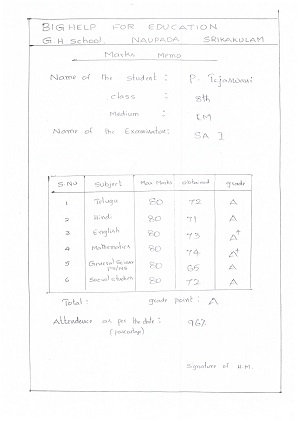 BIG HELP FOR EDUCATION
G H School, NAUPADA SRIKAKULAM
Marks Memo
Name of the Student : P. Tejaswani
Class : 8th
Medium : EM
Name of the Examination : SA 1
S.NO Subject Max Marks Obtained grade
1 Telugu 80 72 A
2 Hindi 80 71 A
3 English 80 73 A+
4 Mathematics 80 74 A+
5 General Science 80 65 A
6 Social studies 80 72 A
Total : grade point : A
Attendence as per the date : 96%
(percentage)
Signature of H.M.